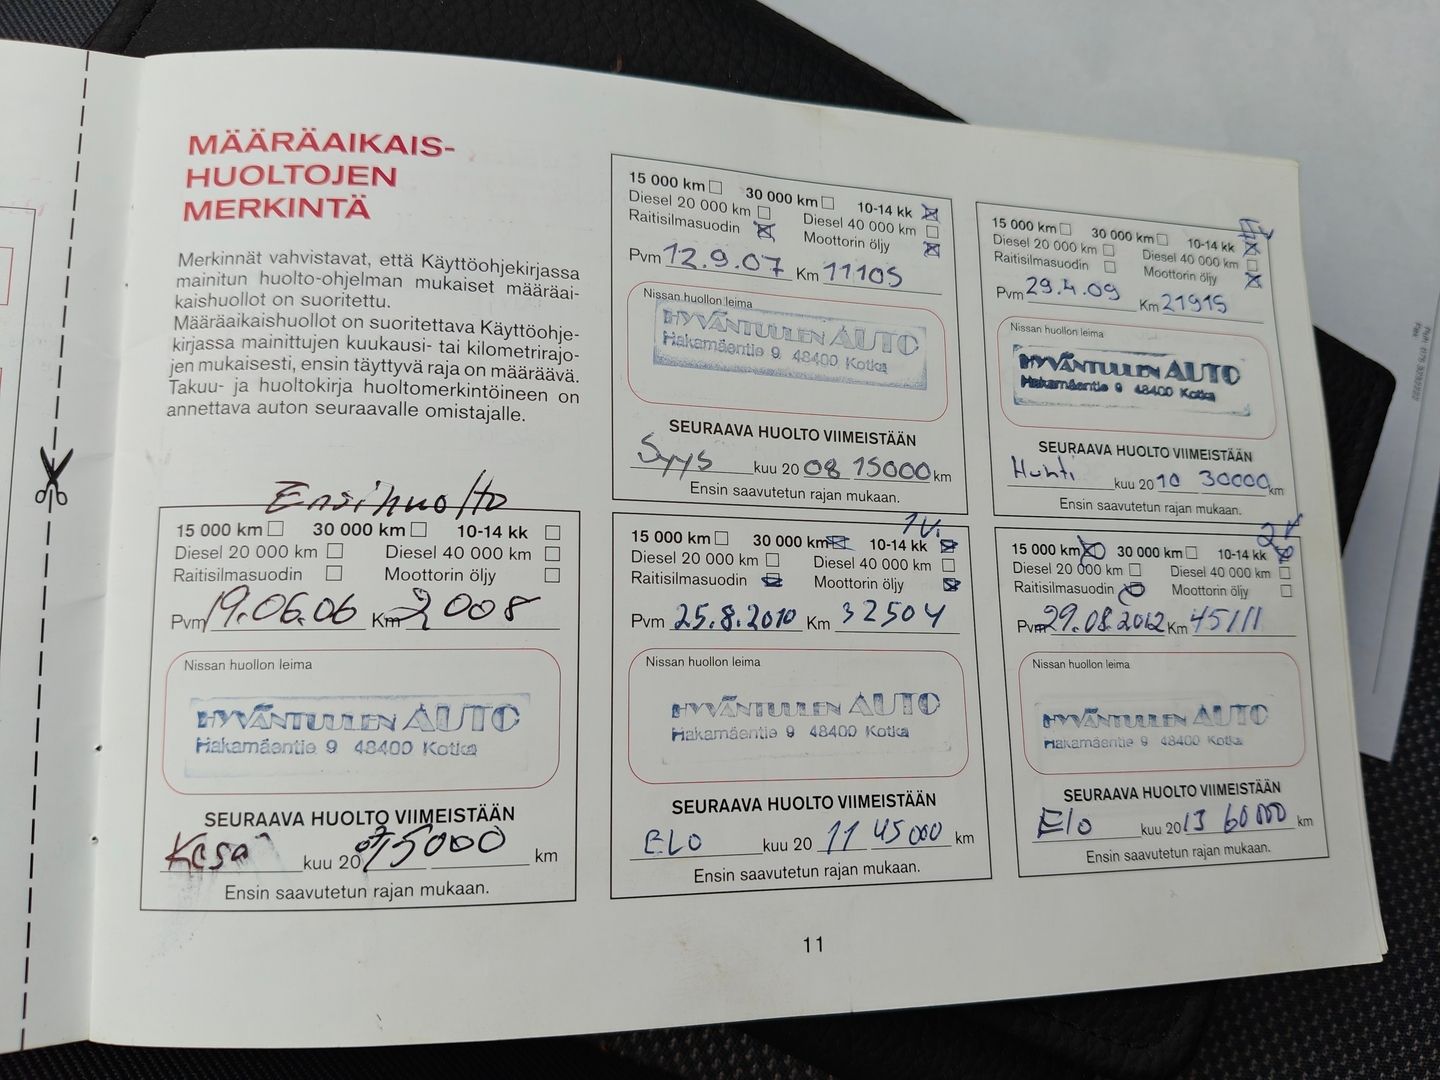 MÄÄRÄAIKAIS-
HUOLTOJEN
MERKINTÄ
Merkinnät vahvistavat, että Käyttöohjekirjassa
mainitun huolto-ohjelman mukaiset määräai-
kaishuollot on suoritettu.
Määräaikaishuollot on suoritettava Käyttöohje-
kirjassa mainittujen kuukausi- tai kilometrirajo-
jen mukaisesti, ensin täyttyvä raja on määräävä.
Takuu- ja huoltokirja huoltomerkintöineen on
annettava auton seuraavalle omistajalle.
Ensihuolto
15 000 km 30 000 km 10-14 kk
Diesel 20 000 km Diesel 40 000 km
Raitisilmasuodin Moottorin öljy
Pvm 19.06.06 Km 2008
Nissan huollon leima
HYVÄNTUULEN AUTO
Hakamäentie 9 48400 Kotka
SEURAAVA HUOLTO VIIMEISTÄÄN
Kesä kuu 20 07 15000 km
Ensin saavutetun rajan mukaan.
15 000 km 30 000 km 10-14 kk
Diesel 20 000 km Diesel 40 000 km
Raitisilmasuodin Moottorin öljy
Pvm 12.9.07 Km 11105
Nissan huollon leima
HYVÄNTUULEN AUTO
Hakamäentie 9 48400 Kotka
SEURAAVA HUOLTO VIIMEISTÄÄN
Syys kuu 20 08 15000 km
Ensin saavutetun rajan mukaan.
15 000 km 30 000 km 10-14 kk
Diesel 20 000 km Diesel 40 000 km
Raitisilmasuodin Moottorin öljy
Pvm 29.4.09 Km 21915
Nissan huollon leima
HYVÄNTUULEN AUTO
Hakamäentie 9 48400 Kotka
SEURAAVA HUOLTO VIIMEISTÄÄN
Huhti kuu 20 10 30000 km
Ensin saavutetun rajan mukaan.
1V.
15 000 km 30 000 km 10-14 kk
Diesel 20 000 km Diesel 40 000 km
Raitisilmasuodin Moottorin öljy
Pvm 25.8.2010 Km 32504
Nissan huollon leima
HYVÄNTUULEN AUTO
Hakamäentie 9 48400 Kotka
SEURAAVA HUOLTO VIIMEISTÄÄN
ELO kuu 20 11 45000 km
Ensin saavutetun rajan mukaan.
2V
15 000 km 30 000 km 10-14 kk
Diesel 20 000 km Diesel 40 000 km
Raitisilmasuodin Moottorin öljy
Pvm 29.08.2012 Km 45111
Nissan huollon leima
HYVÄNTUULEN AUTO
Hakamäentie 9 48400 Kotka
SEURAAVA HUOLTO VIIMEISTÄÄN
Elo kuu 20 13 60000 km
Ensin saavutetun rajan mukaan.
11